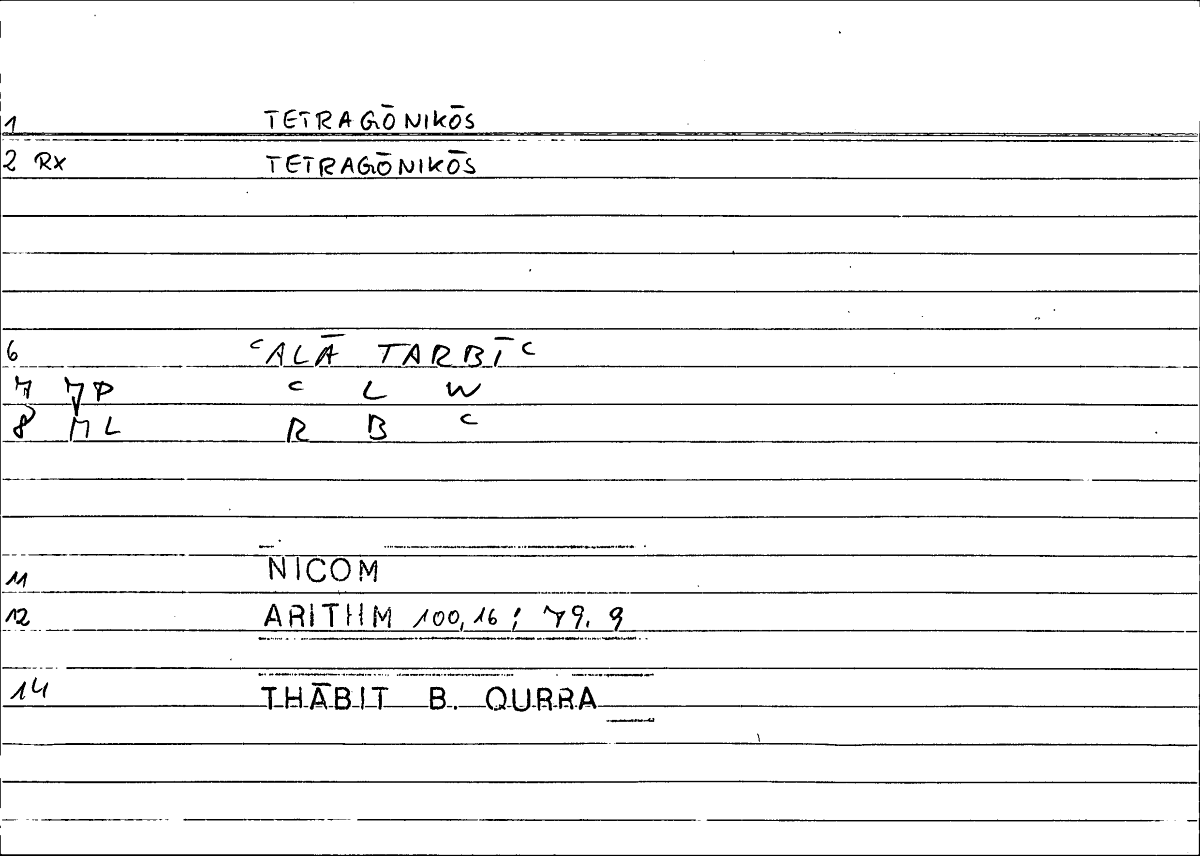 1 TETRAGŌNIKŌS
2 RX TETRAGŌNIKŌS
6 ᶜALĀ TARBĪᶜ
7 7P ᶜ L W
8 ML R B ᶜ
11 NICOM
12 ARITHM 100,16; 79.9
14 THĀBIT B. QURRA